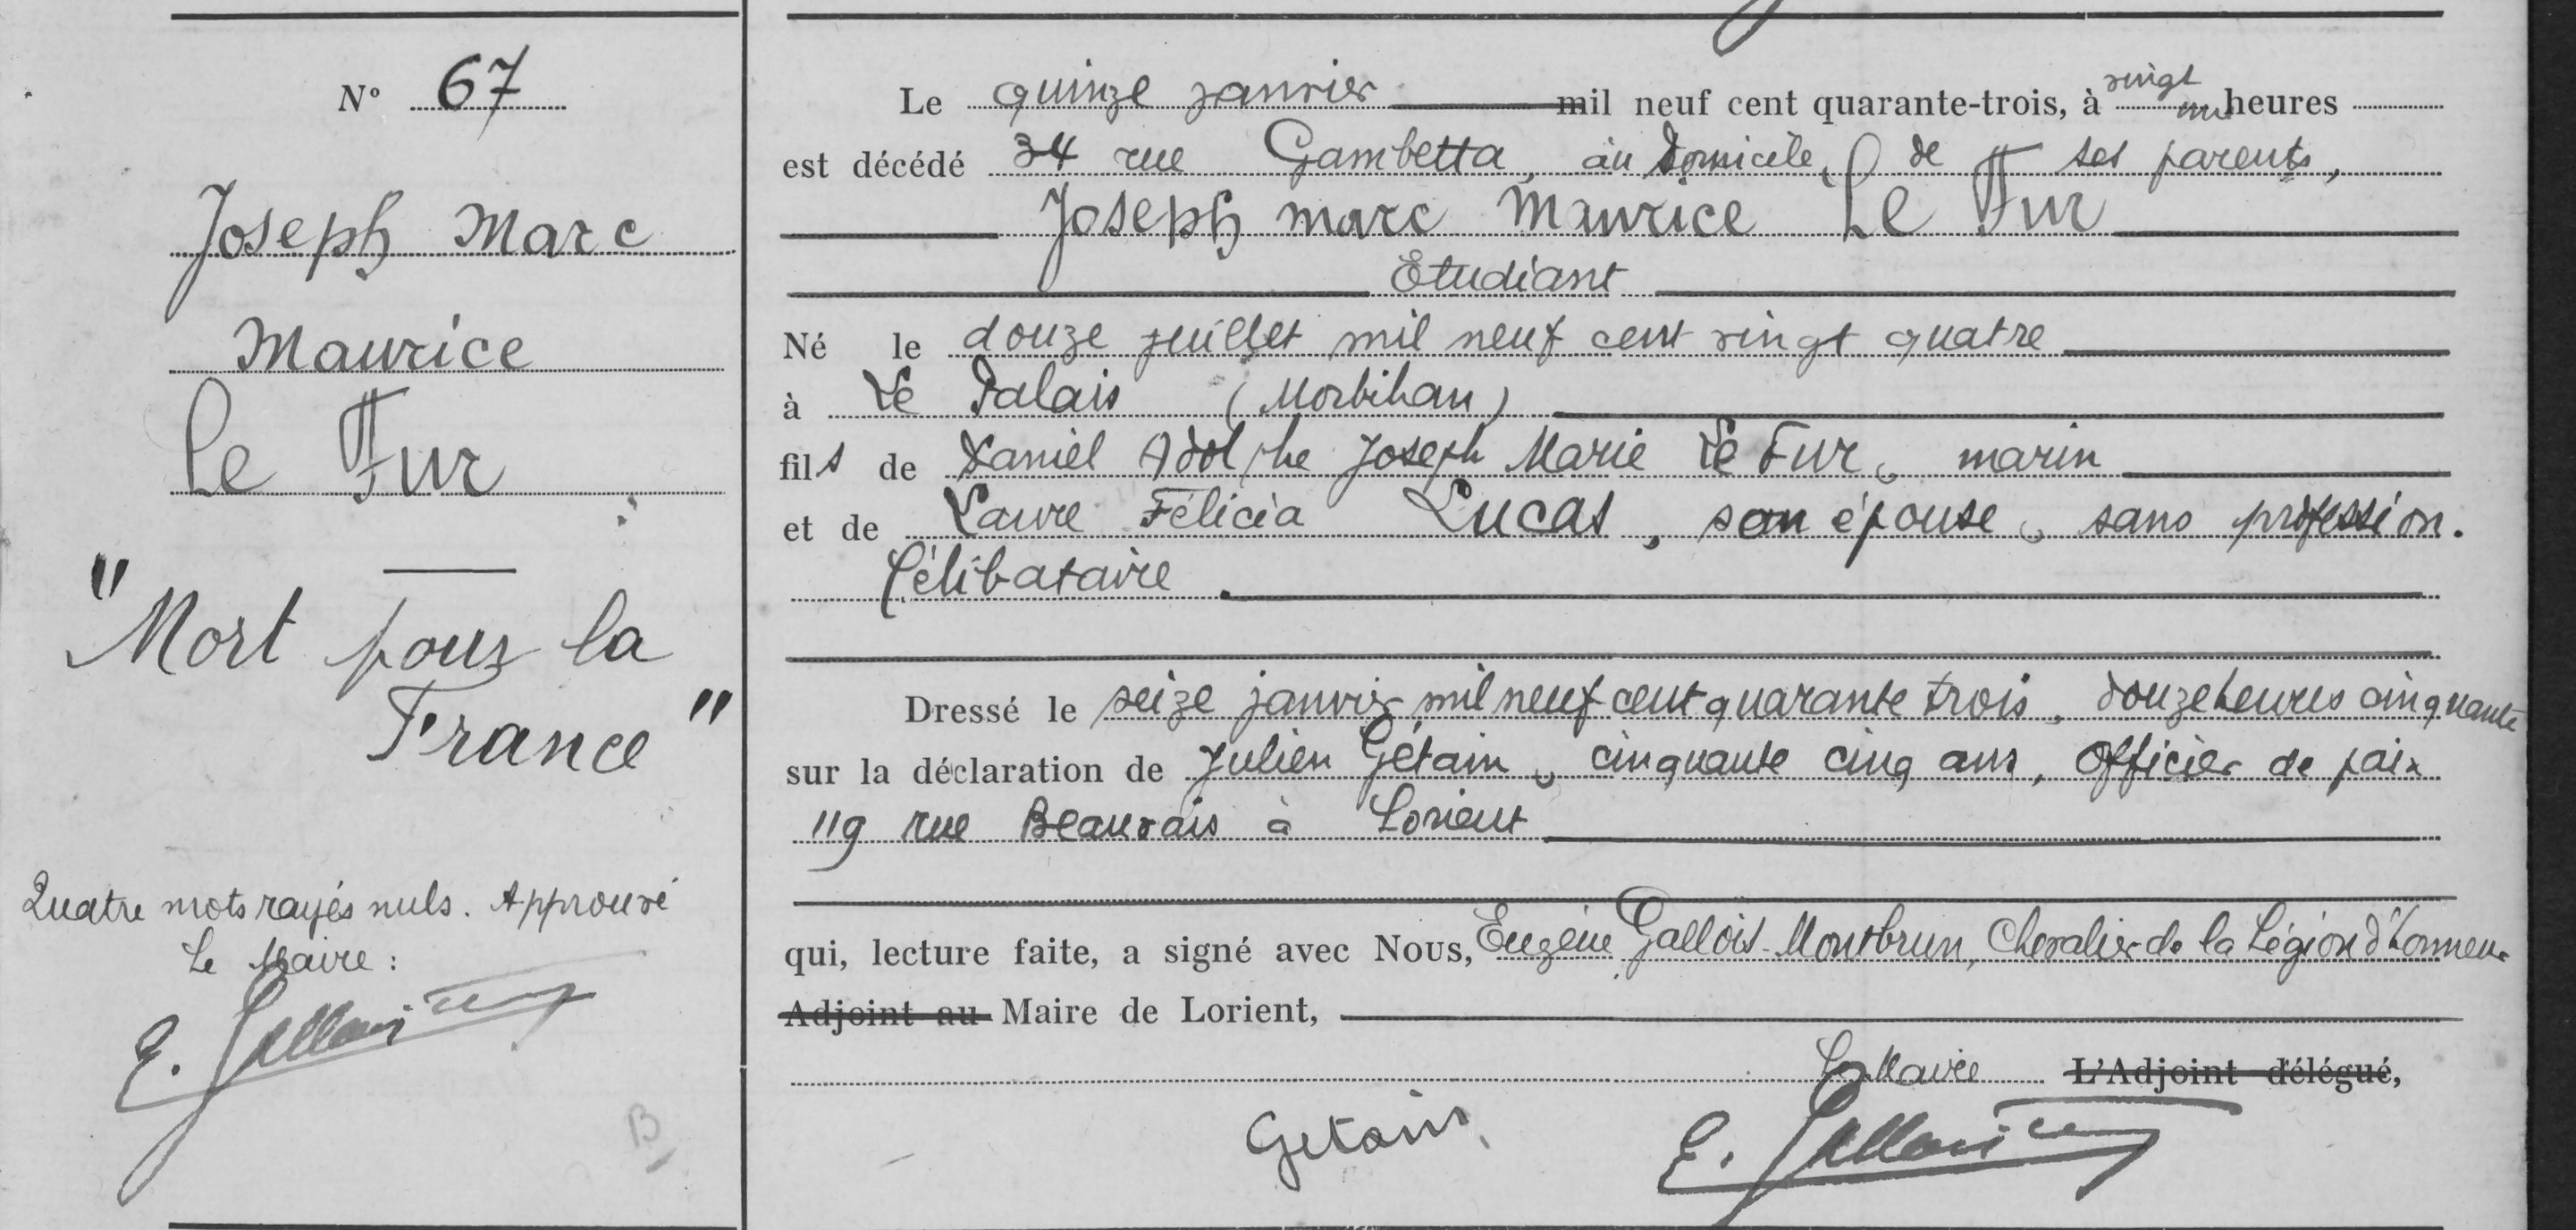 N° 67
Joseph Marc
Maurice
Le Fur
"Mort pour la
France"
Quatre mots rayés nuls. Approuvé
Le Maire :
E. Gallois
B
Le quinze janvier mil neuf cent quarante-trois, à vingt un heures
est décédé 34 rue Gambetta, au domicile de ses parents,
Joseph Marc Maurice Le Fur
Etudiant
Né le douze juillet mil neuf cent vingt quatre
à Le Palais (Morbihan)
fils de Daniel Adolphe Joseph Marie Le Fur, marin
et de Laure Félicia Lucas, son épouse, sans profession.
Célibataire.
Dressé le seize janvier mil neuf cent quarante trois, douze heures cinquante
sur la déclaration de Julien Gétain, cinquante cinq ans, officier de paix
119 rue Beauvais à Lorient
qui, lecture faite, a signé avec Nous, Eugène Gallois-Montbrun, Chevalier de la Légion d'Honneur
Adjoint au Maire de Lorient,
Le Maire L'Adjoint délégué,
Getain E. Gallois